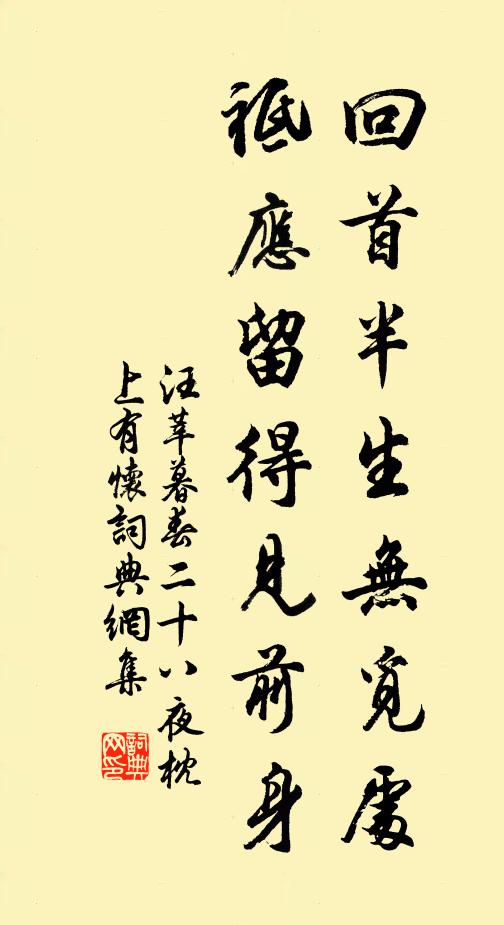 回首半生無覓處
祗應留得見前身
汪莘暮春二十八夜枕
上有懷詞典網集
詞典
网印